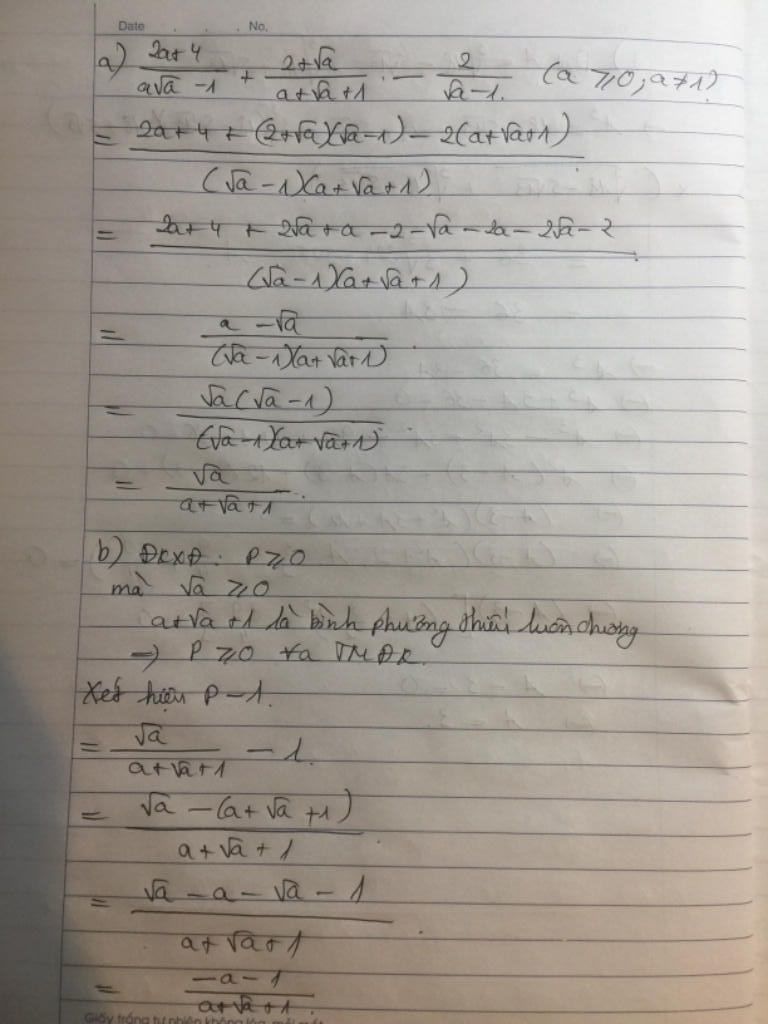 Date . . . No.
a) \frac{2a+4}{a√a -1} + \frac{2+√a}{a+√a+1} - \frac{2}{√a-1} (a ⩾0; a≠1)
= \frac{2a+4+(2+√a)(√a-1)-2(a+√a+1)}{(√a-1)(a+√a+1)}
= \frac{2a+4+2√a+a-2-√a-2a-2√a-2}{(√a-1)(a+√a+1)}
= \frac{a-√a}{(√a-1)(a+√a+1)}
= \frac{√a(√a-1)}{(√a-1)(a+√a+1)}
= \frac{√a}{a+√a+1}.
b) ĐKXĐ: P⩾0
mà √a ⩾0
a+√a+1 là bình phương thiếu luôn dương
=> P⩾0 ∀a TMĐK.
Xét hiệu P-1.
= \frac{√a}{a+√a+1} - 1.
= \frac{√a-(a+√a+1)}{a+√a+1}
= \frac{√a-a-√a-1}{a+√a+1}
= \frac{-a-1}{a+√a+1}.
Giấy trắng tự nhiên không lóa, mỏi mắt